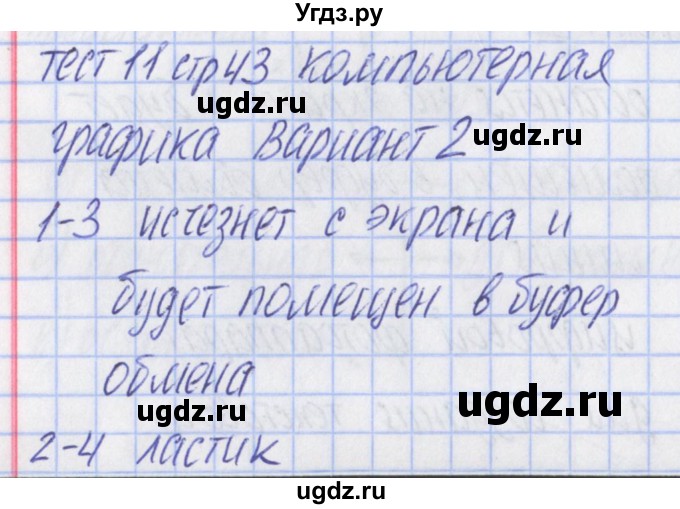 Угдз.ру
тест 11 стр 43 компьютерная
ugdz.ru
графика вариант 2
ugdz.ru
1-3 исчезнет с экрана и
будет помещен в буфер
обмена
ugdz.ru
ugdz.ru
2-4 ластик
ugdz.ru